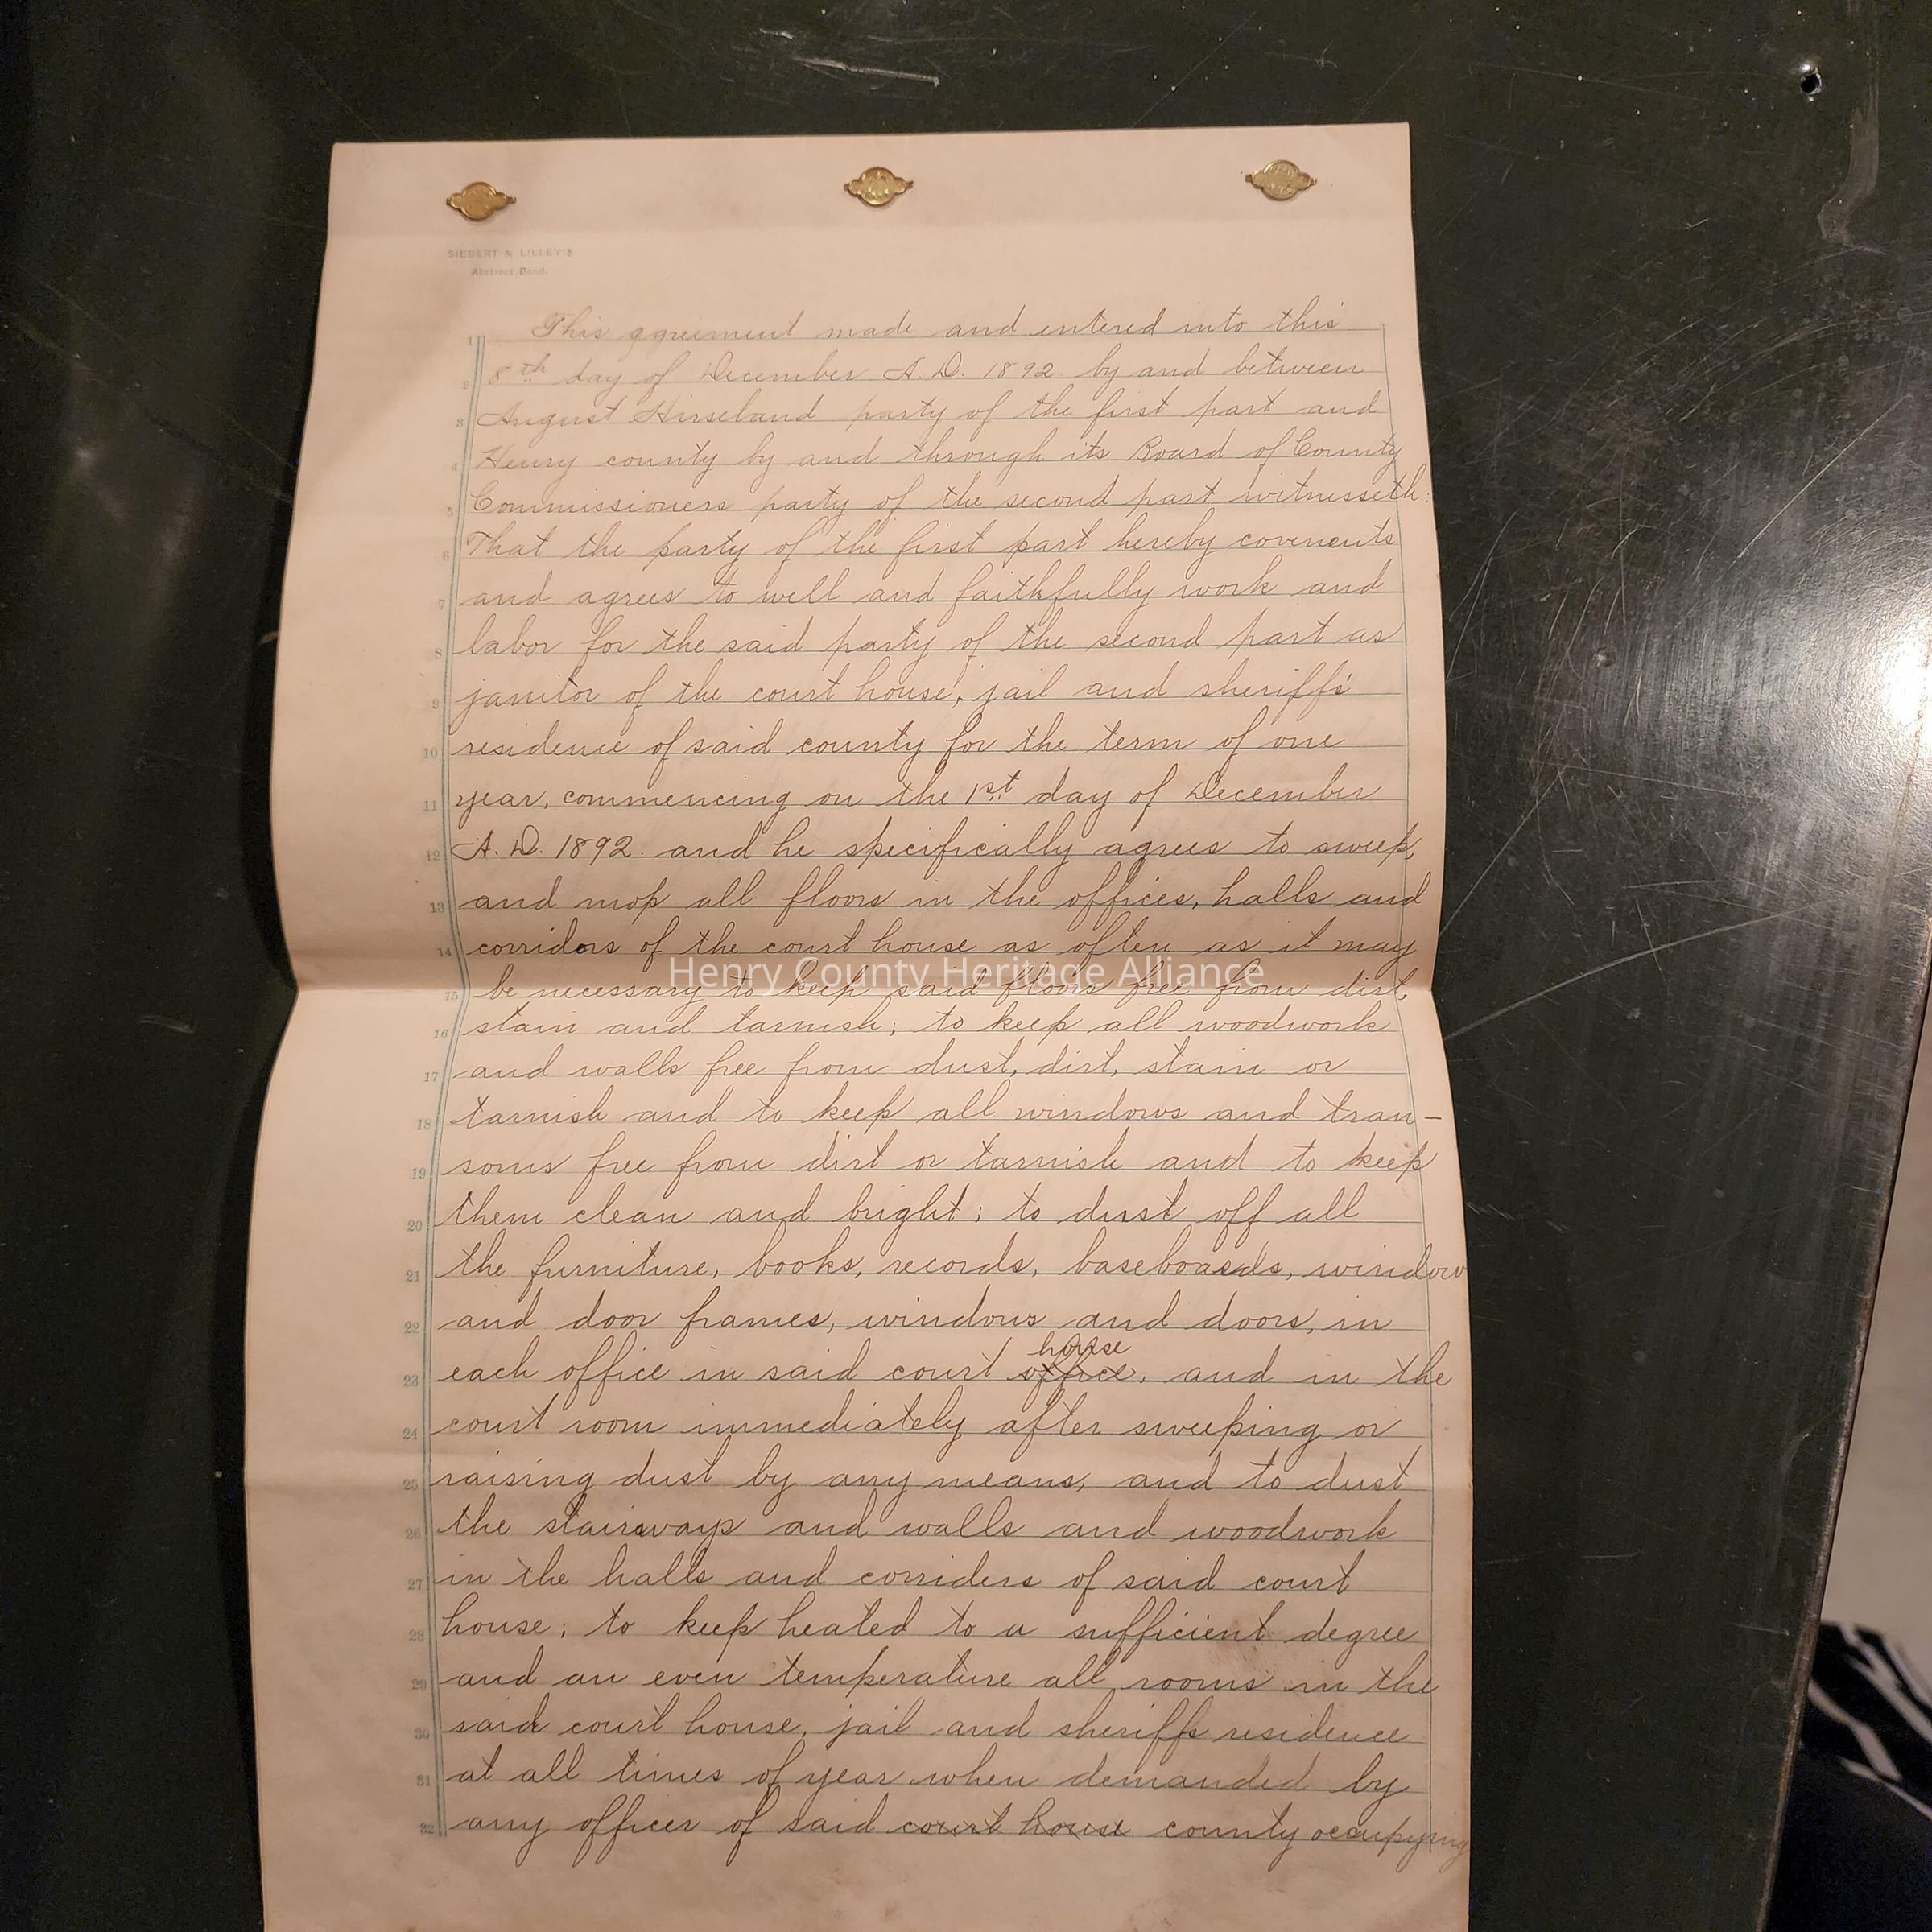 SIEBERT & LILLEY'S
Abstract Bond.
This agreement made and entered into this
1
2 8th day of December A.D. 1892 by and between
3 August Hirseland party of the first part and
4 Henry county by and through its Board of County
5 Commissioners party of the second part witnesseth:
6 That the party of the first part hereby covenents
7 and agrees to well and faithfully work and
8 labor for the said party of the second part as
9 janitor of the court house, jail and sheriffs'
10 residence of said county for the term of one
11 year, commencing on the 1st day of December
12 A.D. 1892 and he specifically agrees to sweep,
13 and mop all floors in the offices, halls and
14 corridors of the court house as often as it may
Henry County Heritage Alliance
15 be necessary to keep said floors free from dirt,
16 stain and tarnish; to keep all woodwork
17 and walls free from dust, dirt, stain or
18 tarnish and to keep all windows and tran-
19 soms free from dirt or tarnish and to keep
20 them clean and bright; to dust off all
21 the furniture, books, records, baseboards, window
22 and door frames, windows and doors, in
house
23 each office in said court office, and in the
24 court room immediately after sweeping or
25 raising dust by any means, and to dust
26 the stairways and walls and woodwork
27 in the halls and corriders of said court
28 house; to keep heated to a sufficient degree
29 and an even temperature all rooms in the
30 said court house, jail and sheriffs residence
31 at all times of year when demanded by
32 any officer of said court house county occupying